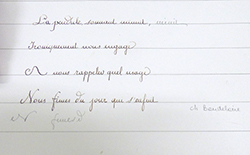 La pendule sonnant minuit, minuit
Ironiquement nous engage
A nous rappeler quel usage
Nous fîmes du jour qui s'enfuit.
ch Baudelaire
N